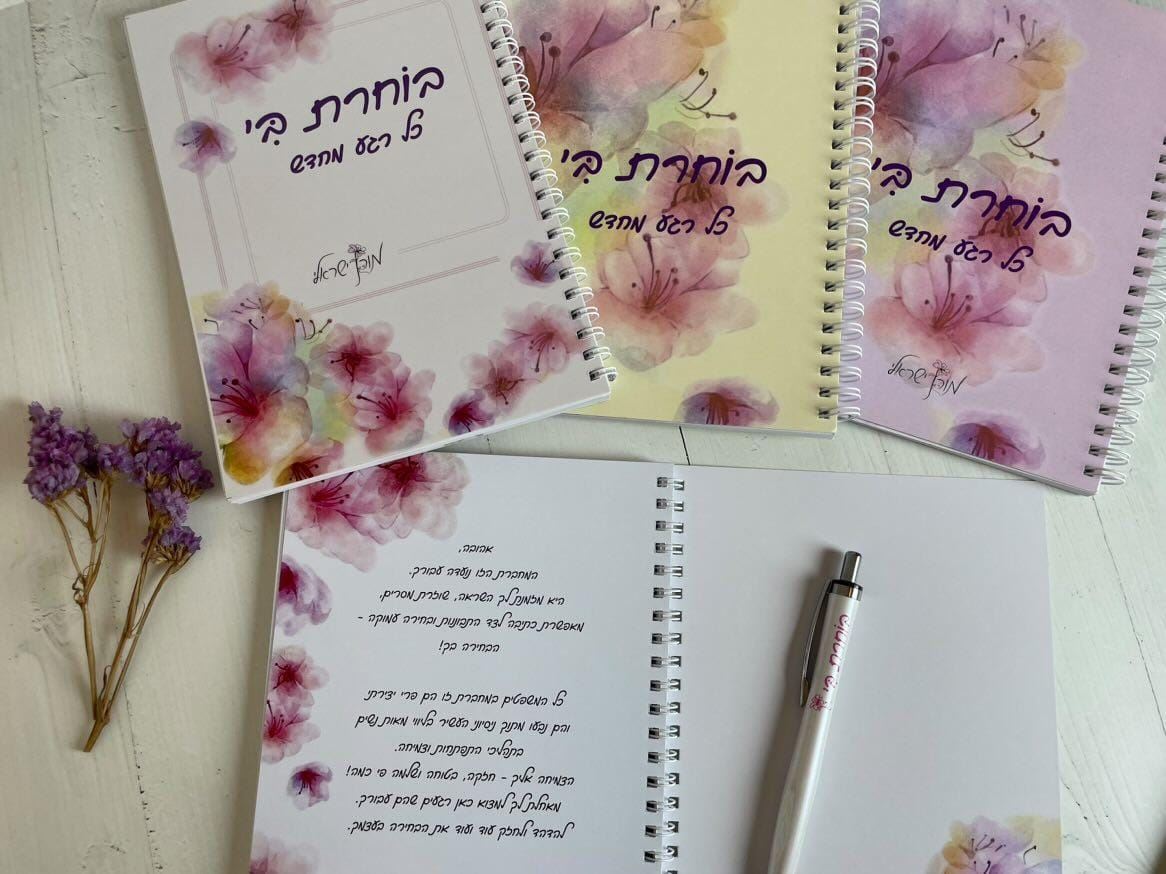 בוֹחרת בִּי
כל רגע מחדש
מורן ישראלי
בוֹחרת בִּי
כל רגע מחדש
בוֹחרת בִּי
כל רגע מחדש
מורן ישראלי
אהובה,
המחברת הזו נועדה עבורך.
היא מזמנת לך השראה, שוזרת מסרים,
מאפשרת כתיבה לצד התבוננות ובחירה עמוקה -
הבחירה בך!
כל המשפטים במחברת זו הם פרי יצירתי
והם נבעו מתוך נסיוני העשיר בליווי מאות נשים
בתהליכי התפתחות וצמיחה.
הצמיחה אליך - חזקה, בטוחה ושלמה פי כמה!
מאחלת לך למצוא כאן רגעים שהם עבורך.
להדהד ולחזק עוד ועוד את הבחירה בעצמך.